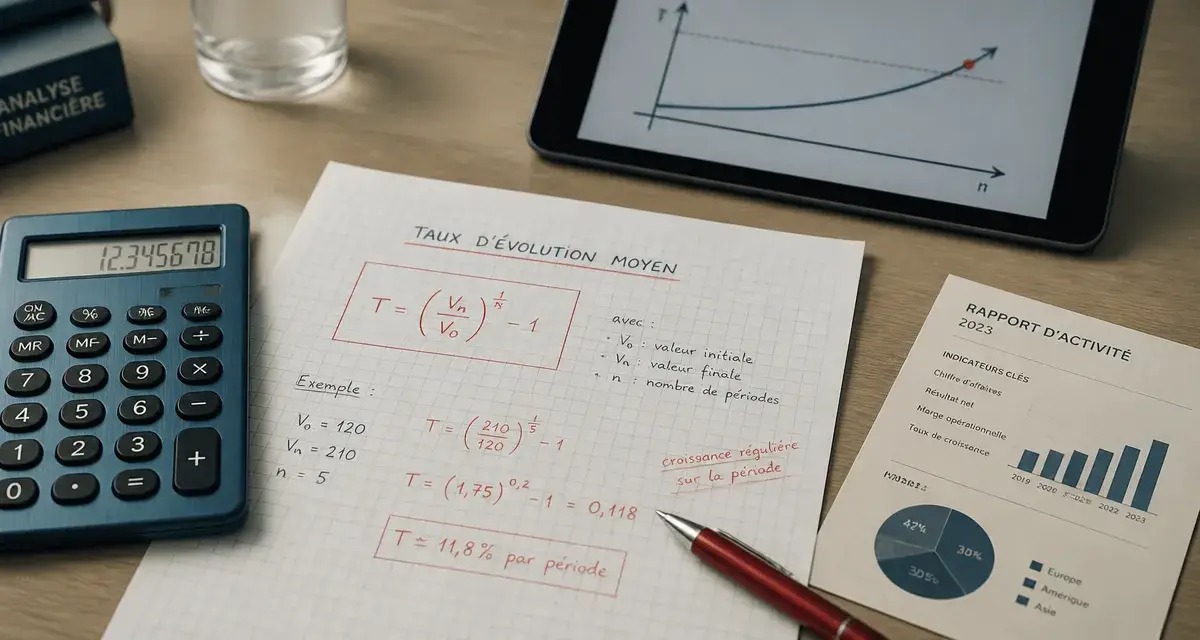 ANALYSE
FINANCIÈRE
12.345678
ON/AC %
MR M-
7 8 9 ×
4 5 6 −
1 2 3 +
0 . =
÷
n
TAUX D'ÉVOLUTION MOYEN
T = (Vn/V0)^(1/n) - 1
avec :
- V0 : valeur initiale
- Vn : valeur finale
- n : nombre de périodes
Exemple :
V0 = 120
Vn = 210
n = 5
T = (210/120)^(1/5) - 1
T = (1,75)^0,2 - 1 = 0,118
T ≃ 11,8% par période
croissance régulière
sur la période
RAPPORT D'ACTIVITÉ
2023
INDICATEURS CLÉS
Chiffre d'affaires
Résultat net
Marge opérationnelle
Taux de croissance
2019 2020 2022 2023
42%
30%
30%
Europe
Amérique
Asie